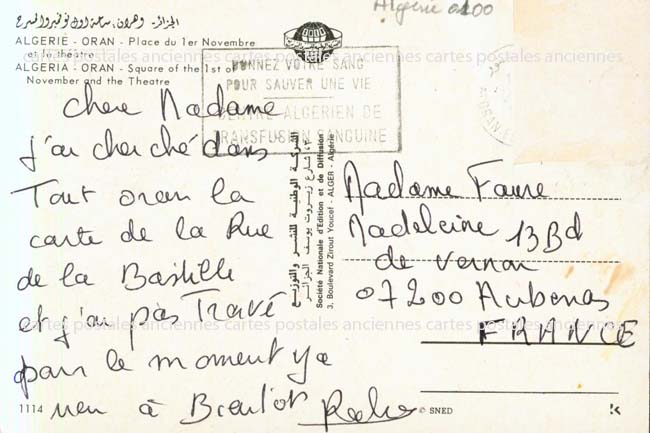 Algérie 0100
الجزائر - وهران، ساحة أول نوفمبر والمسرح
ALGERIE - ORAN - Place du 1er Novembre
et le théâtre
ALGERIA - ORAN - Square of the 1st of
November and the Theatre
DONNEZ VOTRE SANG
POUR SAUVER UNE VIE
CENTRE ALGERIEN DE
TRANSFUSION SANGUINE
cartes postales anciennes cartes postales anciennes cartes postales anciennes
chere Madame
j'ai cherché dans
Tout oran la
carte de la Rue
de la Bastille
et j'ai pas Travé
pour le moment ya
rien à Bientot
الشركة الوطنية للنشر والتوزيع
3، شارع زيروت يوسف الجزائر
Société Nationale d'Edition et de Diffusion
3, Boulevard Zirout Youcef - ALGER - Algérie
Madame Faure
Madeleine 13 Bd
de vernon
07200 Aubenas
FRANCE
cartes postales anciennes cartes postales anciennes cartes postales anciennes
1114
© SNED